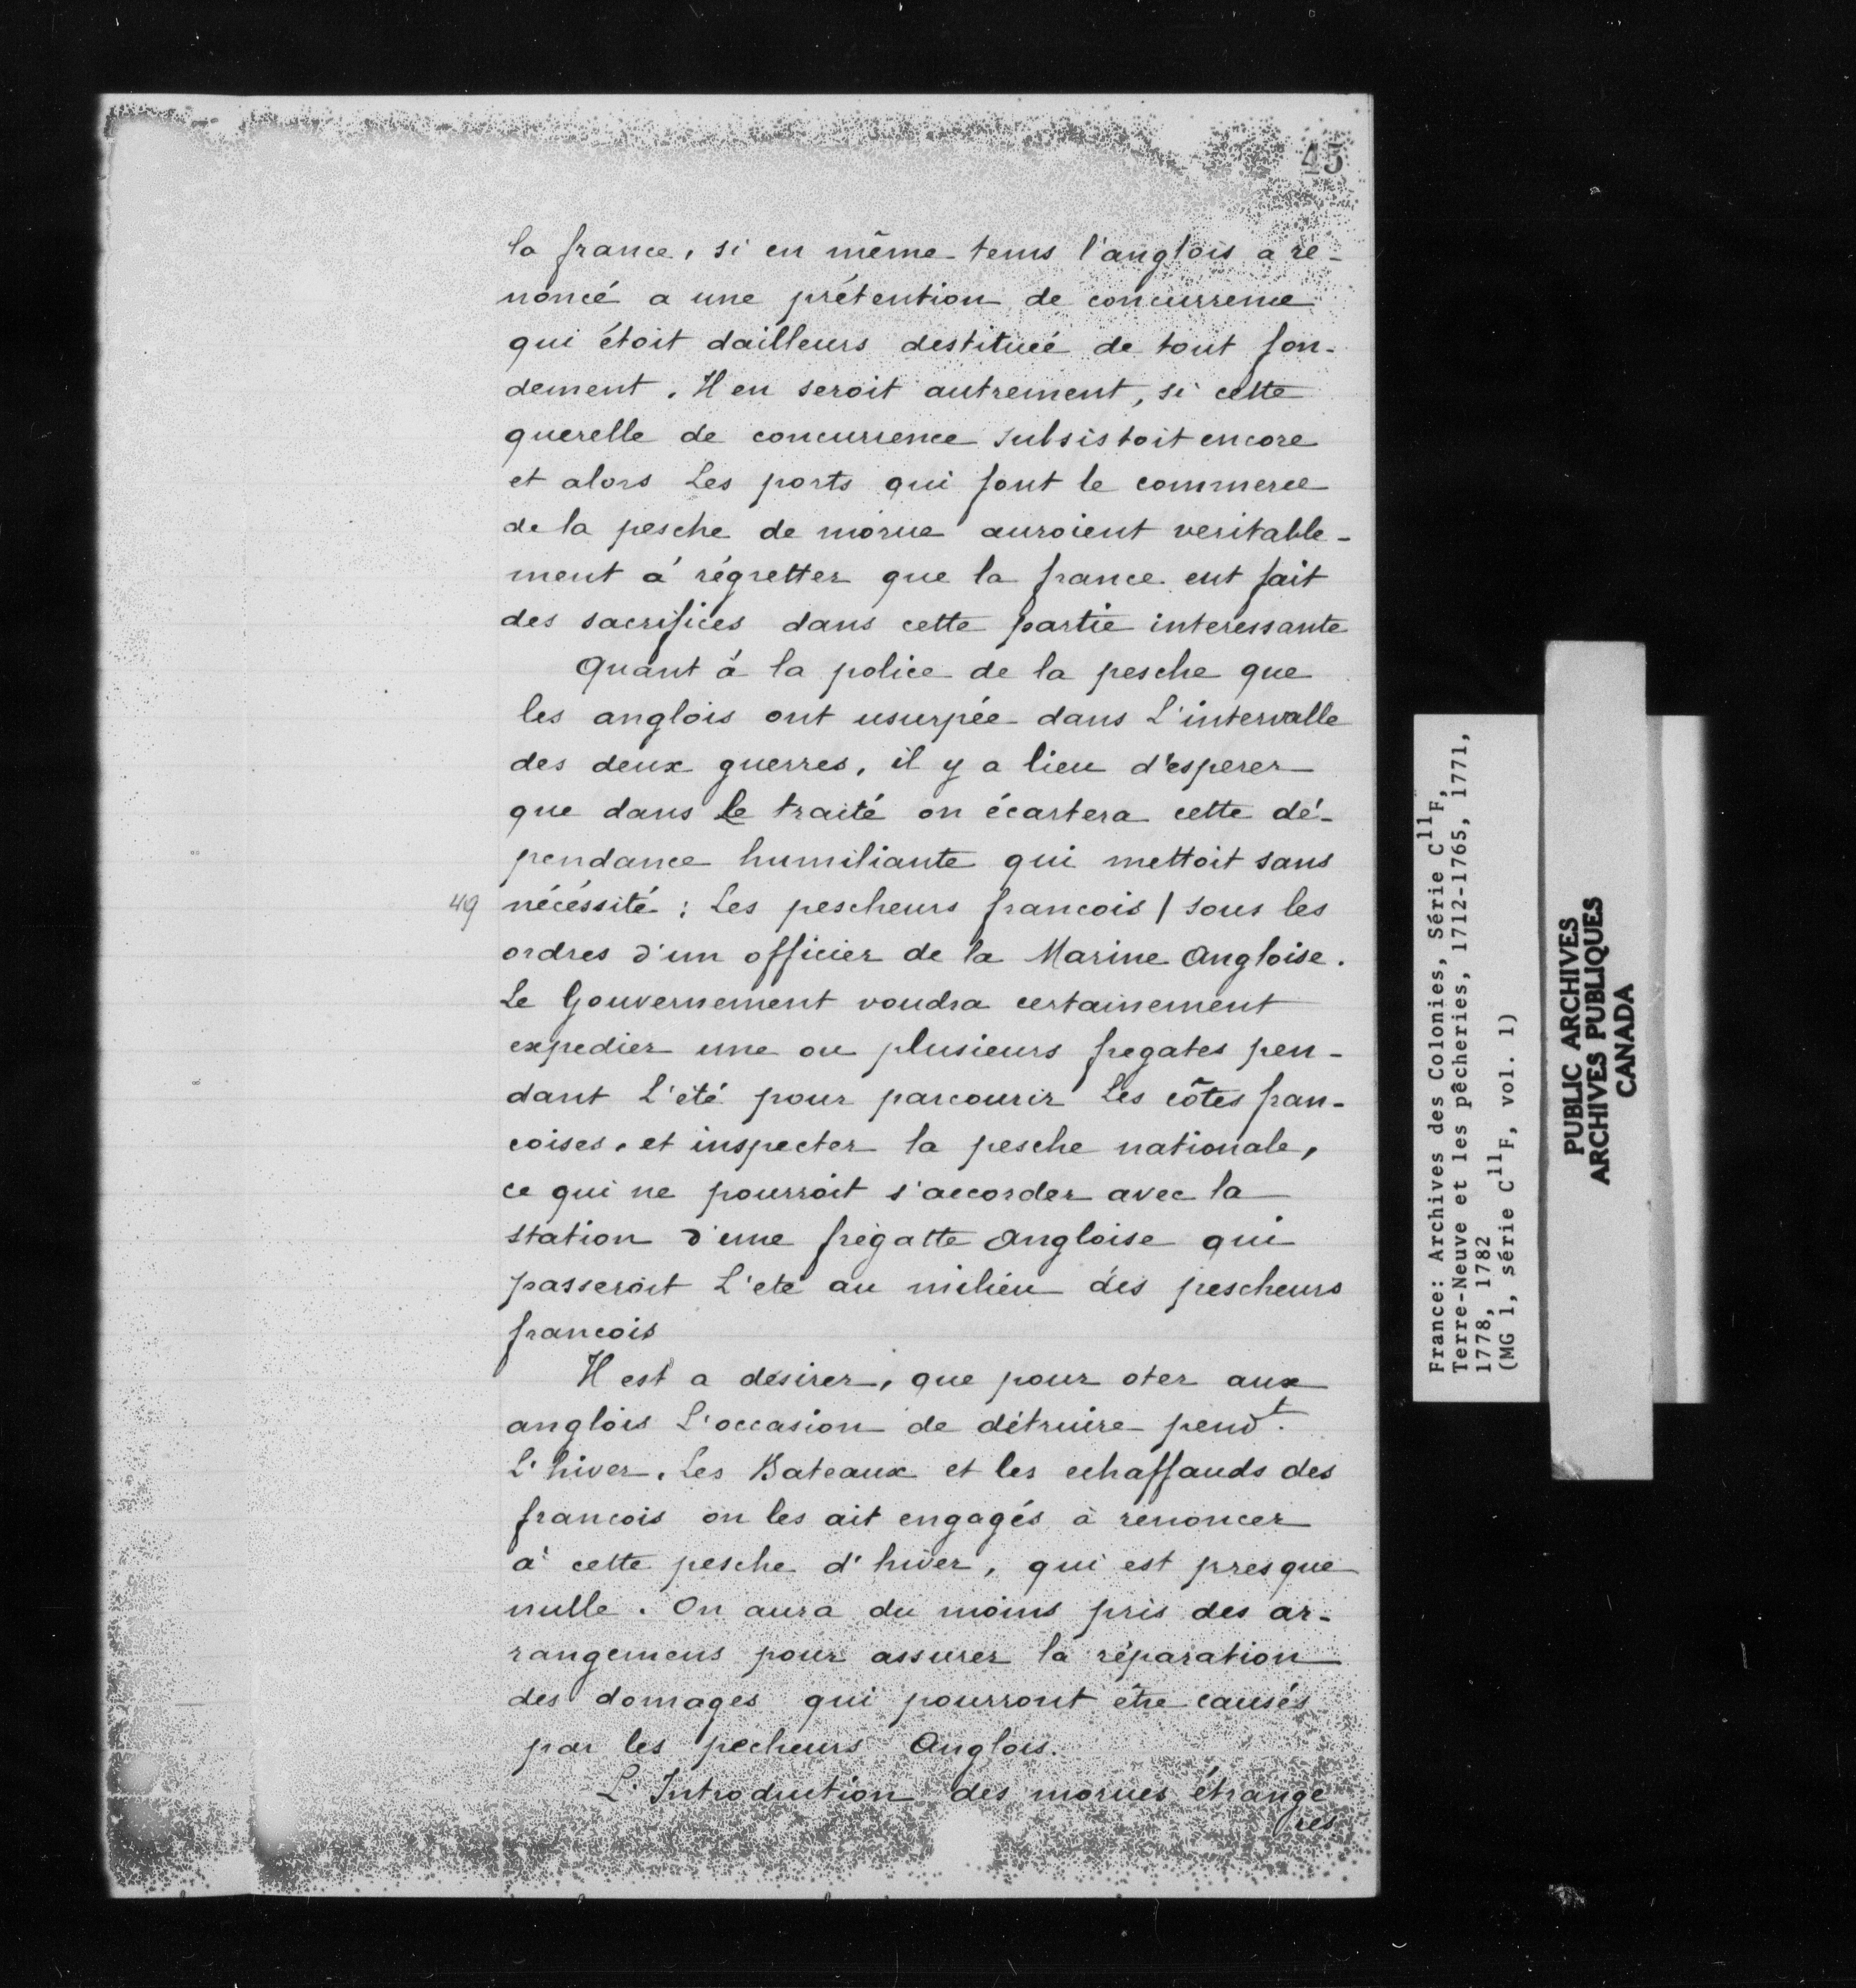 45
la france, si en même-tems l'anglois a re-
noncé a une prétention de concurrence
qui étoit dailleurs destituée de tout fon-
dement. Il en seroit autrement, si cette
querelle de concurrence subsistoit encore
et alors Les ports qui font le commerce
de la pesche de morue auroient veritable-
ment à régretter que la france eut fait
des sacrifices dans cette partie interessante
Quant à la police de la pesche que
les anglois ont usurpée dans L'intervalle
des deux guerres, il y a lieu d'esperer
que dans le traité on écartera cette dé-
pendance humiliante qui mettoit sans
49 nécéssité : Les pescheurs francois / sous les
ordres d'un officier de la Marine Angloise.
Le Gouvernement voudra certainement
expedier une ou plusieurs fregates pen-
dant L'été pour parcourir Les côtes fran-
coises, et inspecter la pesche nationale,
ce qui ne pourroit s'accorder avec la
station d'une frégatte Angloise qui
passeroit L'eté au milieu des pescheurs
francois
Il est a desirer, que pour oter aux
anglois L'occasion de détruire pendt.
L'hiver, Les Bateaux et les echaffauds des
francois on les ait engagés à renoncer
à cette pesche d'hiver, qui est presque
nulle. On aura du moins pris des ar-
rangemens pour assurer la réparation
des domages qui pourront être causés
par les pecheurs Anglois.
L'Introduction des morues étrange
res
France: Archives des Colonies, Série C11F,
Terre-Neuve et les pêcheries, 1712-1765, 1771,
1778, 1782
(MG 1, série C11F, vol. 1)
PUBLIC ARCHIVES
ARCHIVES PUBLIQUES
CANADA